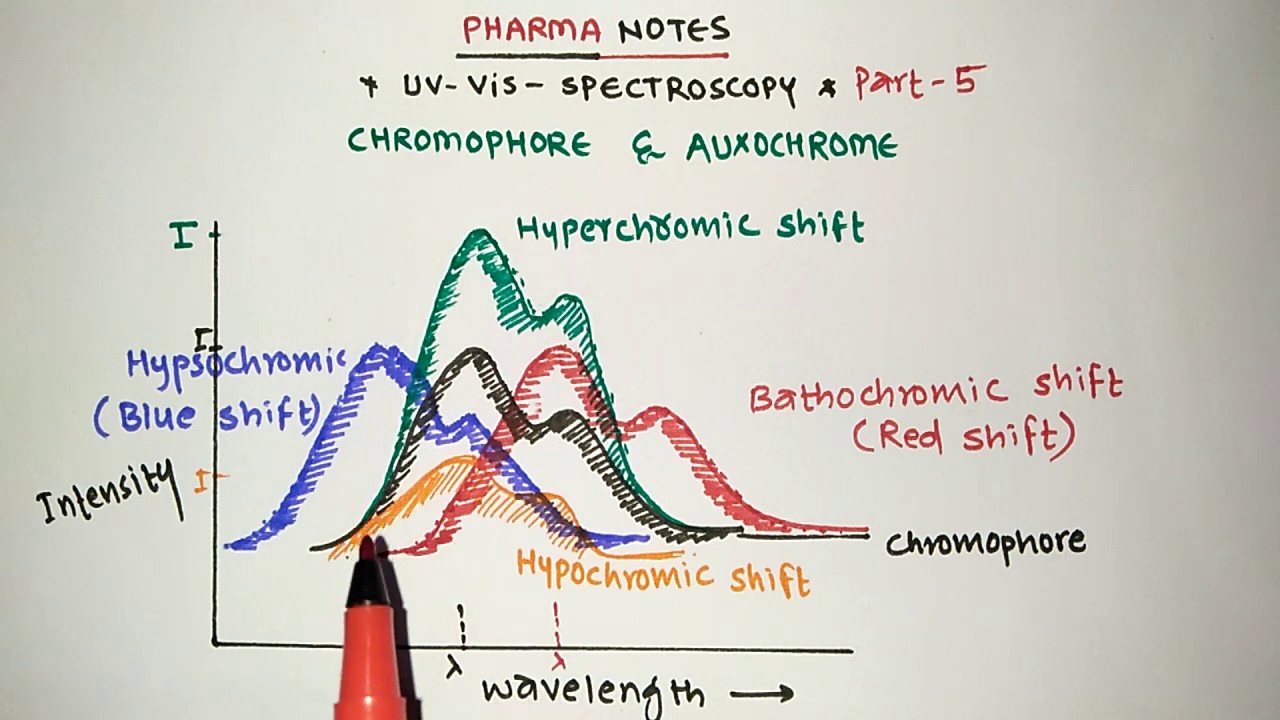 PHARMA NOTES
* UV-Vis-SPECTROSCOPY * Part-5
CHROMOPHORE & AUXOCHROME
I
Hyperchromic shift
I
Hypsochromic
(Blue shift)
Bathochromic shift
(Red shift)
Intensity
I
chromophore
Hypochromic shift
λ
λ
wavelength →